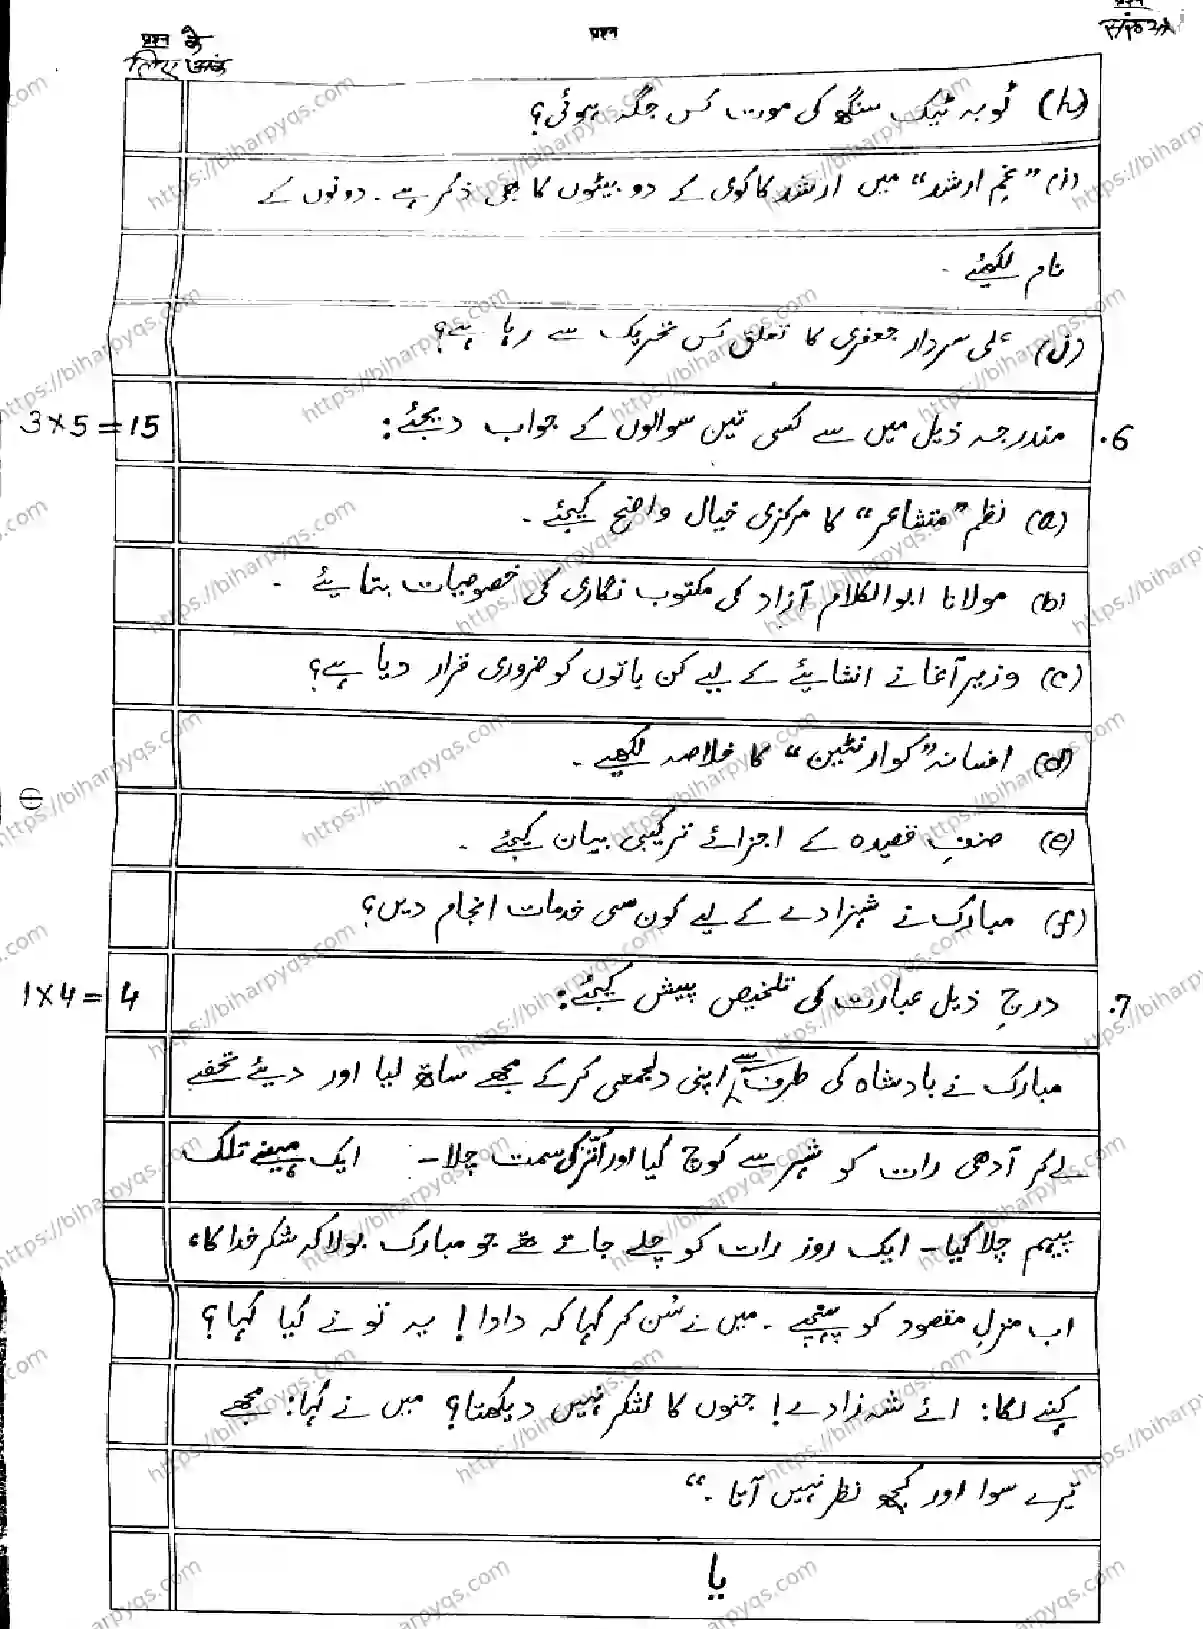 प्रश्न के लिए अंक
प्रश्न
प्रश्न
(h) ٹوبہ ٹیک سنگھ کی موت کس جگہ ہوئی؟
(i) "غمِ ارشد" میں ارشد کاکوی کے دو بیٹوں کا بھی ذکر ہے۔ دونوں کے
نام لکھئے۔
(j) علی سردار جعفری کا تعلق کس تحریک سے رہا ہے؟
6. مندرجہ ذیل میں سے کسی تین سوالوں کے جواب دیجئے: 3×5=15
(a) نظم "متشاعر" کا مرکزی خیال واضح کیجئے۔
(b) مولانا ابوالکلام آزاد کی مکتوب نگاری کی خصوصیات بتایئے۔
(c) وزیر آغا نے انشایئے کے لیے کن باتوں کو ضروری قرار دیا ہے؟
(d) افسانہ "کوارنٹین" کا خلاصہ لکھیے۔
(e) صنفِ قصیدہ کے اجزائے ترکیبی بیان کیجئے۔
(f) مبارک نے شہزادے کے لیے کون سی خدمات انجام دیں؟
7. درجِ ذیل عبارت کی تلخیص پیش کیجئے: 1×4=4
مبارک نے بادشاہ کی طرف سے اپنی دلجمعی کر کے مجھے ساتھ لیا اور دیئے تحفے
لے کر آدھی رات کو شہر سے کوچ کیا اور اُتّر کی سمت چلا۔ ایک مہینے تلک
پیہم چلا گیا۔ ایک روز رات کو چلے جاتے تھے جو مبارک بولا کہ شکر خدا کا،
اب منزلِ مقصود کو پہنچے۔ میں نے سُن کر کہا کہ دادا! یہ تو نے کیا کہا؟
کہنے لگا: ائے شہ زادے! جنوں کا لشکر نہیں دیکھتا؟ میں نے کہا: مجھے
تیرے سوا اور کچھ نظر نہیں آتا۔"
یا
https://biharpyqs.com